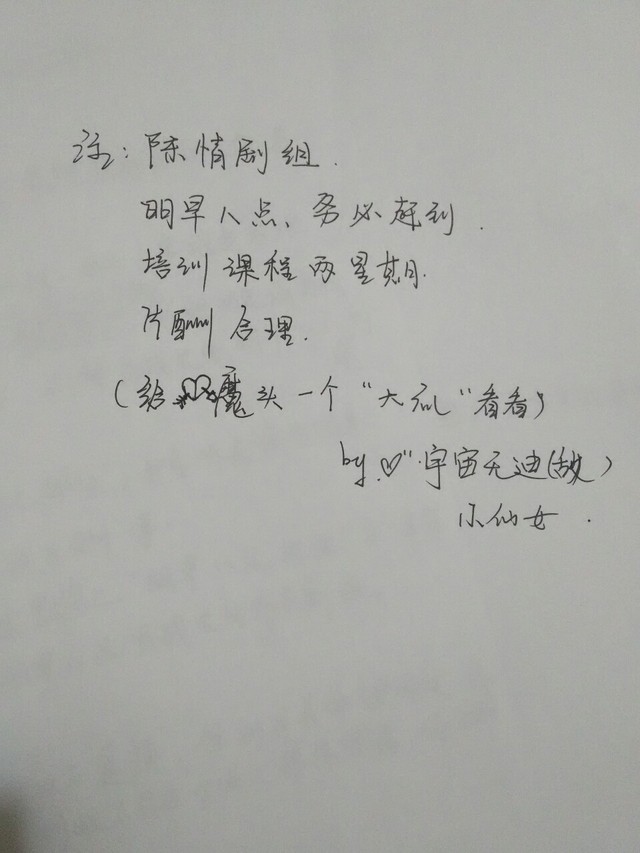 注:陈情剧组.
明早八点、务必赶到.
培训课程两星期.
片酬合理.
(给魔头一个"大礼"看看)
by.♡"宇宙无迪(敌)
小仙女.